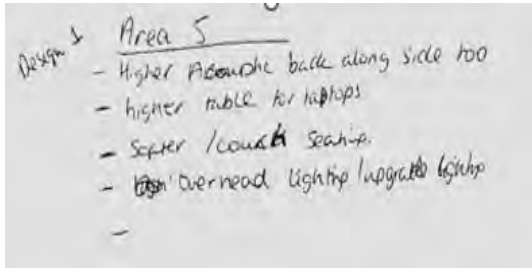 Design 1 Area 5
- Higher Acoustic back along side too
- higher table for laptops
- Softer / couch seating.
- Overhead lighting / upgrade lighting
-